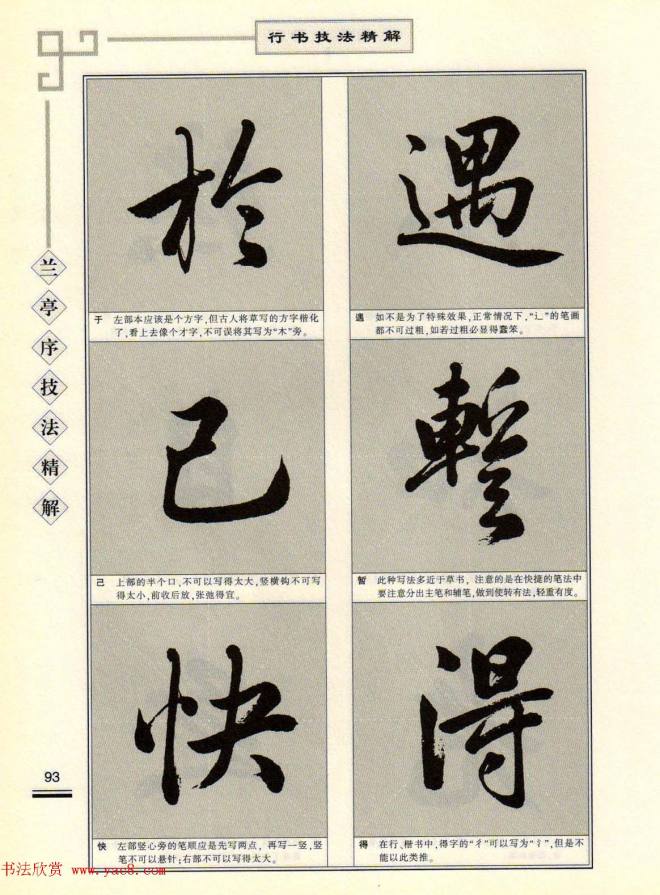 行书技法精解
兰亭序技法精解
遇
遇 如不是为了特殊效果,正常情况下,“辶”的笔画
都不可过粗,如若过粗必显得蠢笨。
暫
暂 此种写法多近于草书,注意的是在快捷的笔法中
要注意分出主笔和辅笔,做到使转有法,轻重有度。
得
得 在行、楷书中,得字的“彳”可以写为“氵”,但是不
能以此类推。
於
于 左部本应该是个方字,但古人将草写的方字楷化
了,看上去像个才字,不可误将其写为“木”旁。
己
己 上部的半个口,不可以写得太大,竖横钩不可写
得太小,前收后放,张弛得宜。
快
快 左部竖心旁的笔顺应是先写两点,再写一竖,竖
笔不可以悬针;右部不可以写得太大。
93
书法欣赏 www.yac8.com